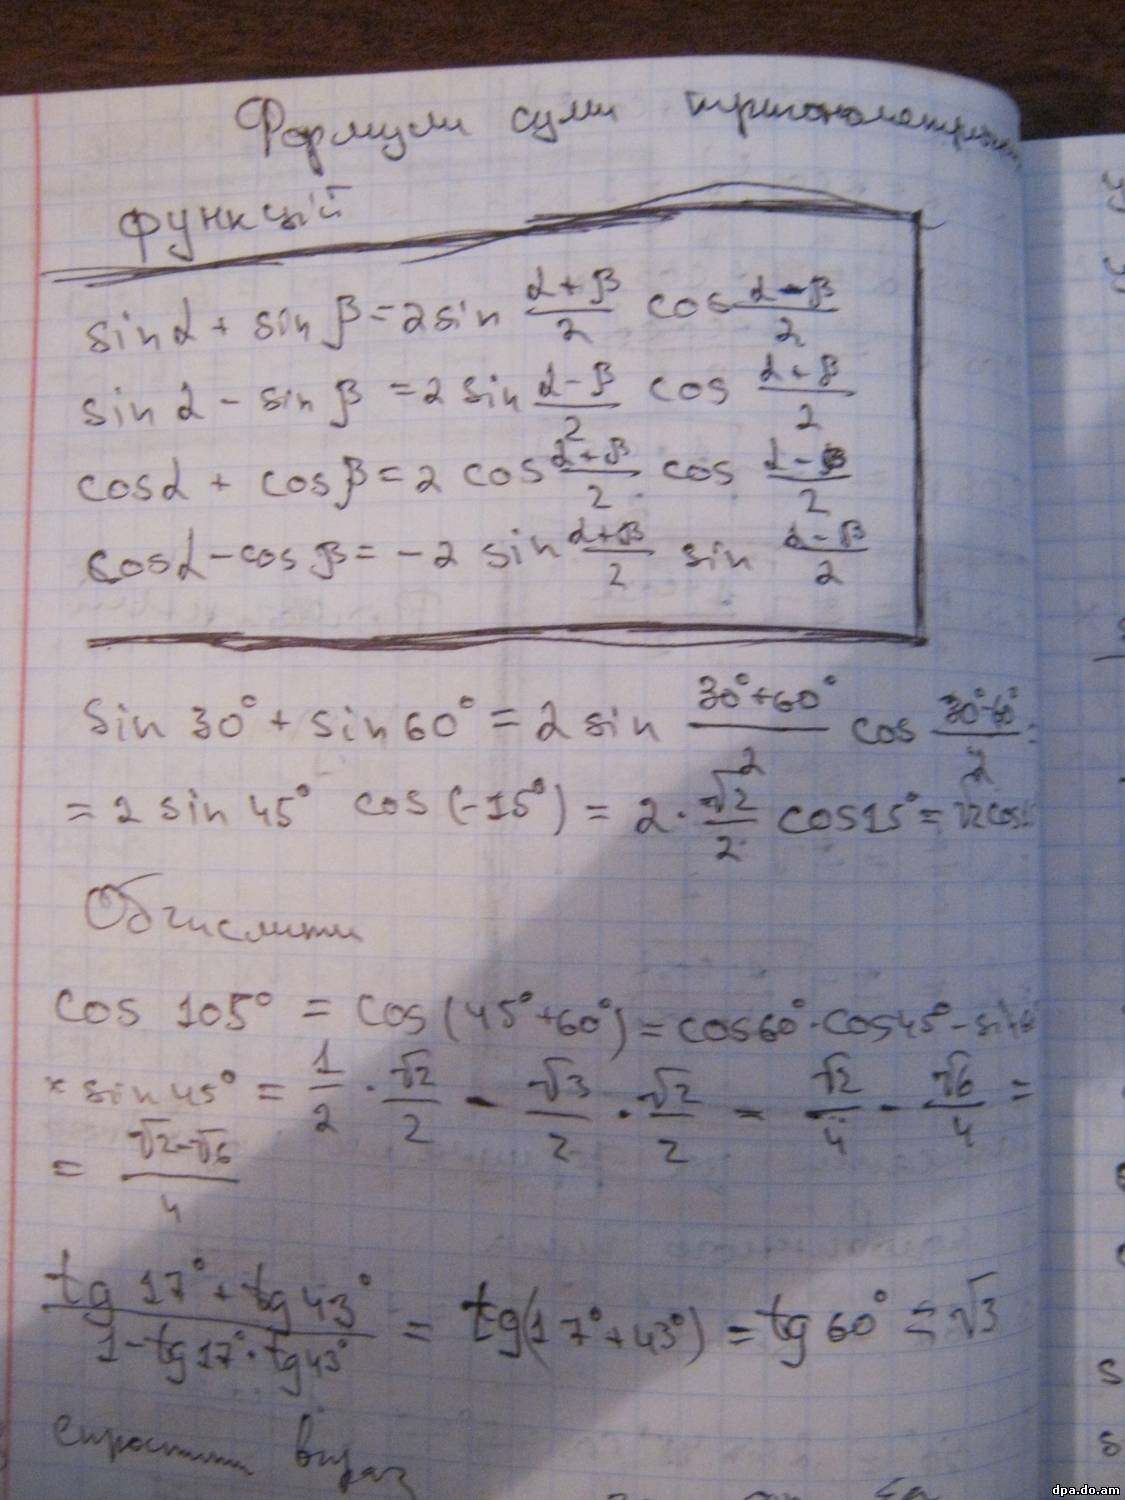 Формули суми тригонометричн
функцій
sinα + sin β = 2 sin (α+β)/2 cos (α-β)/2
sin α - sin β = 2 sin (α-β)/2 cos (α+β)/2
cosα + cosβ = 2 cos (α+β)/2 cos (α-β)/2
cosα - cosβ = -2 sin (α+β)/2 sin (α-β)/2
sin 30° + sin 60° = 2 sin (30°+60°)/2 cos (30°-60°)/2 =
= 2 sin 45° cos (-15°) = 2 · √2/2 cos15° = √2 cos
Обчислити
cos 105° = cos (45°+60°) = cos60° · cos45° - sin 60
× sin 45° = 1/2 · √2/2 - √3/2 · √2/2 = √2/4 - √6/4 =
= (√2-√6)/4
(tg 17° + tg 43°)/(1 - tg 17° · tg 43°) = tg (17° + 43°) = tg 60° = √3
спростити вираз
dpa.do.am